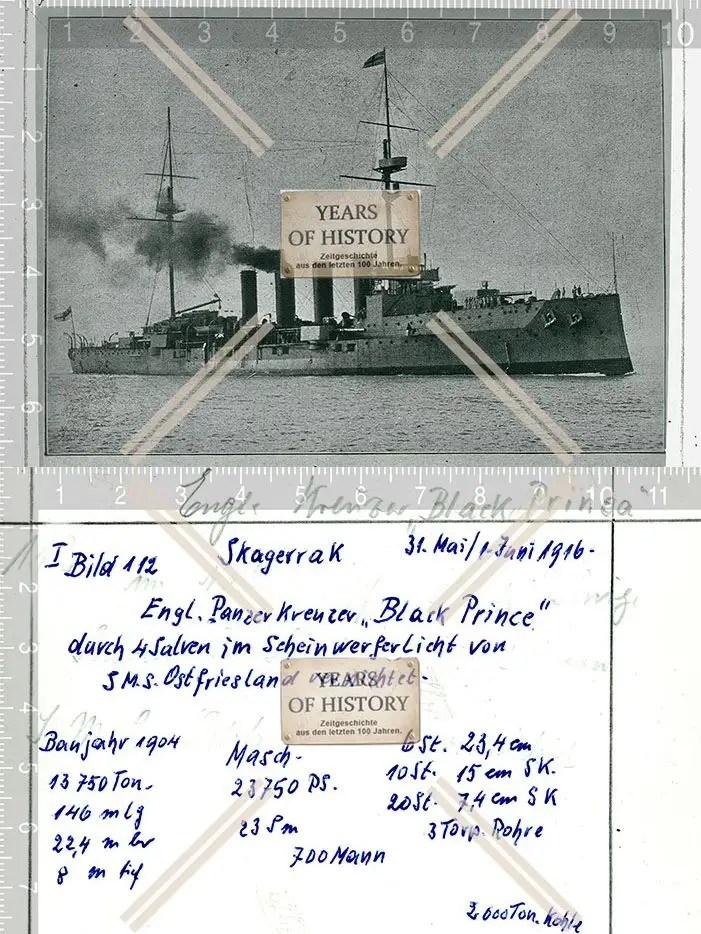 1 2 3 4 5 6 7 8 9 10
1
2
3
4
5
6
YEARS
OF HISTORY
Zeitgeschichte
aus den letzten 100 Jahren.
1 2 3 4 5 6 7 8 9 10 11
Engl. Kreuzer "Black Prince"
I Bild 112 Skagerrak 31. Mai/1 Juni 1916-
Engl. Panzerkreuzer „Black Prince"
durch 4 Salven im Scheinwerferlicht von
S.M.S. Ostfriesland vernichtet-
YEARS
OF HISTORY
Zeitgeschichte
aus den letzten 100 Jahren.
Baujahr 1904 Masch- 6 St. 23,4 cm
13750 Ton. 23750 PS. 10 St. 15 cm SK.
146 m lg 20 St. 7,4 cm SK
22,4 m br 23 Sm 3 Torp. Rohre
8 m tief 700 Mann
2000 Ton. Kohle
2
3
5
6
7